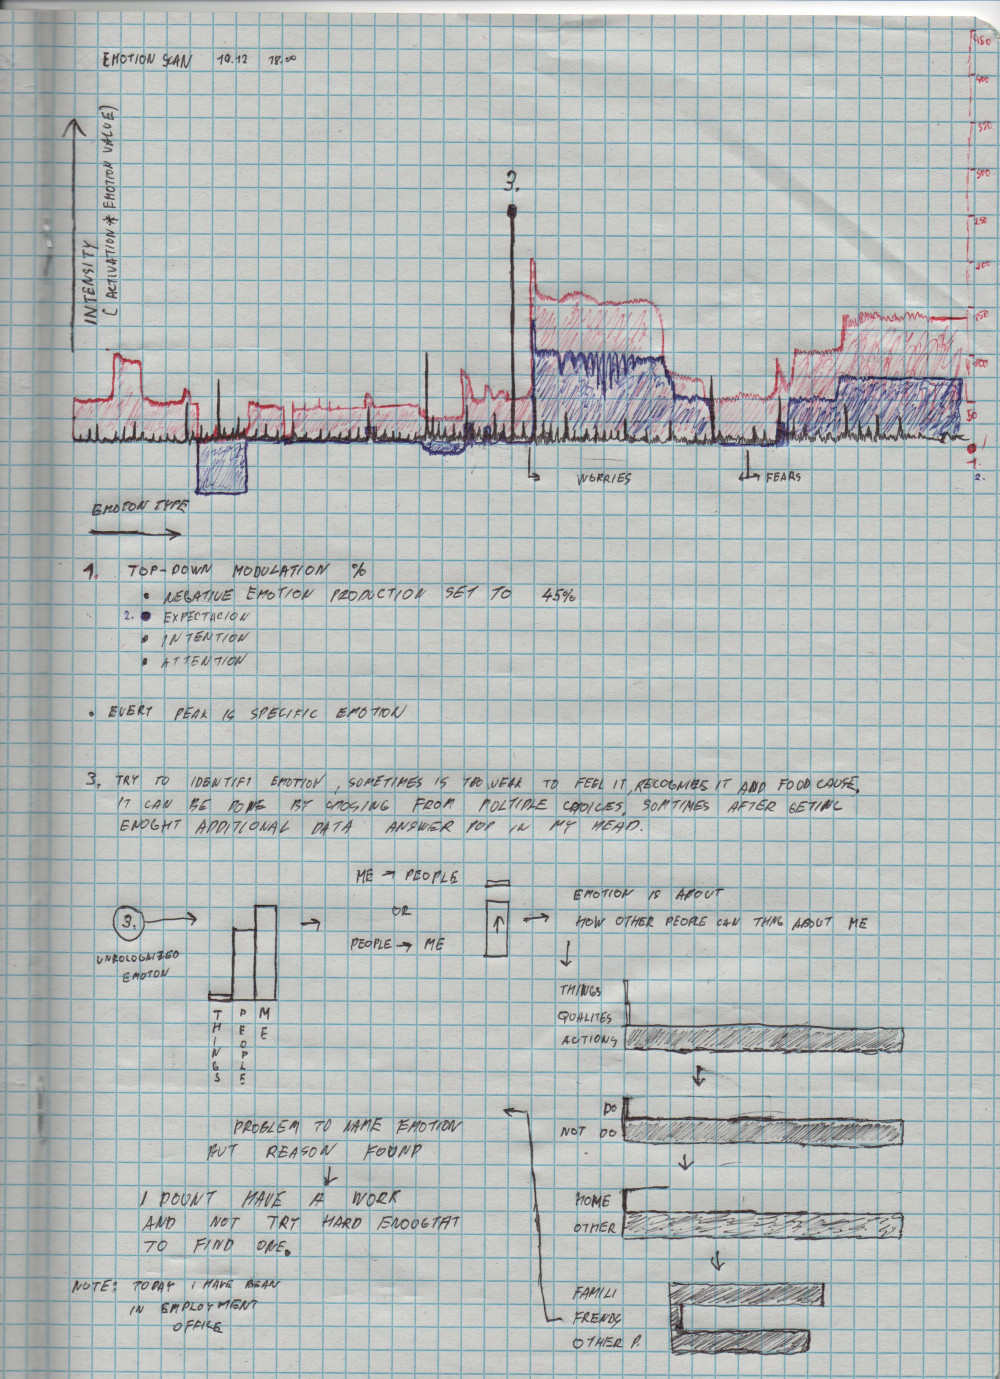 EMOTION SCAN 19.12 18.00
450
400
350
300
250
200
150
100
50
1.
2.
INTENSITY
(ACTIVATION * EMOTION VALUE)
3.
WORRIES
FEARS
EMOTON TYPE
1. TOP-DOWN MODULATION %
• NEGATIVE EMOTION PRODUCTION SET TO 45%
2. • EXPECTACION
• INTENTION
• ATTENTION
• EVERY PEAK IS SPECIFIC EMOTION
3. TRY TO IDENTIFI EMOTION, SOMETIMES IS TOO WEAK TO FEEL IT, RECOGNISE IT AND FOOD CAUSE.
IT CAN BE DONE BY CHOSING FROM MULTIPLE CHOICES, SOMTIMES AFTER GETING
ENOGHT ADDITIONAL DATA ANSWER POP IN MY HEAD.
3.
UNROLOGNIZED
EMOTON
THINGS
PEOPLE
ME
ME → PEOPLE
OR
PEOPLE → ME
EMOTION IS ABOUT
HOW OTHER PEOPLE CAN THING ABOUT ME
THINGS
QUALITES
ACTIONS
DO
NOT DO
HOME
OTHER
FAMILI
FRENDS
OTHER P.
PROBLEM TO NAME EMOTION
BUT REASON FOUND
I DOUNT HAVE A WORK
AND NOT TRY HARD ENOUGTAT
TO FIND ONE.
NOTE: TODAY I HAVE BEAN
IN EMPLOYMENT
OFFICE